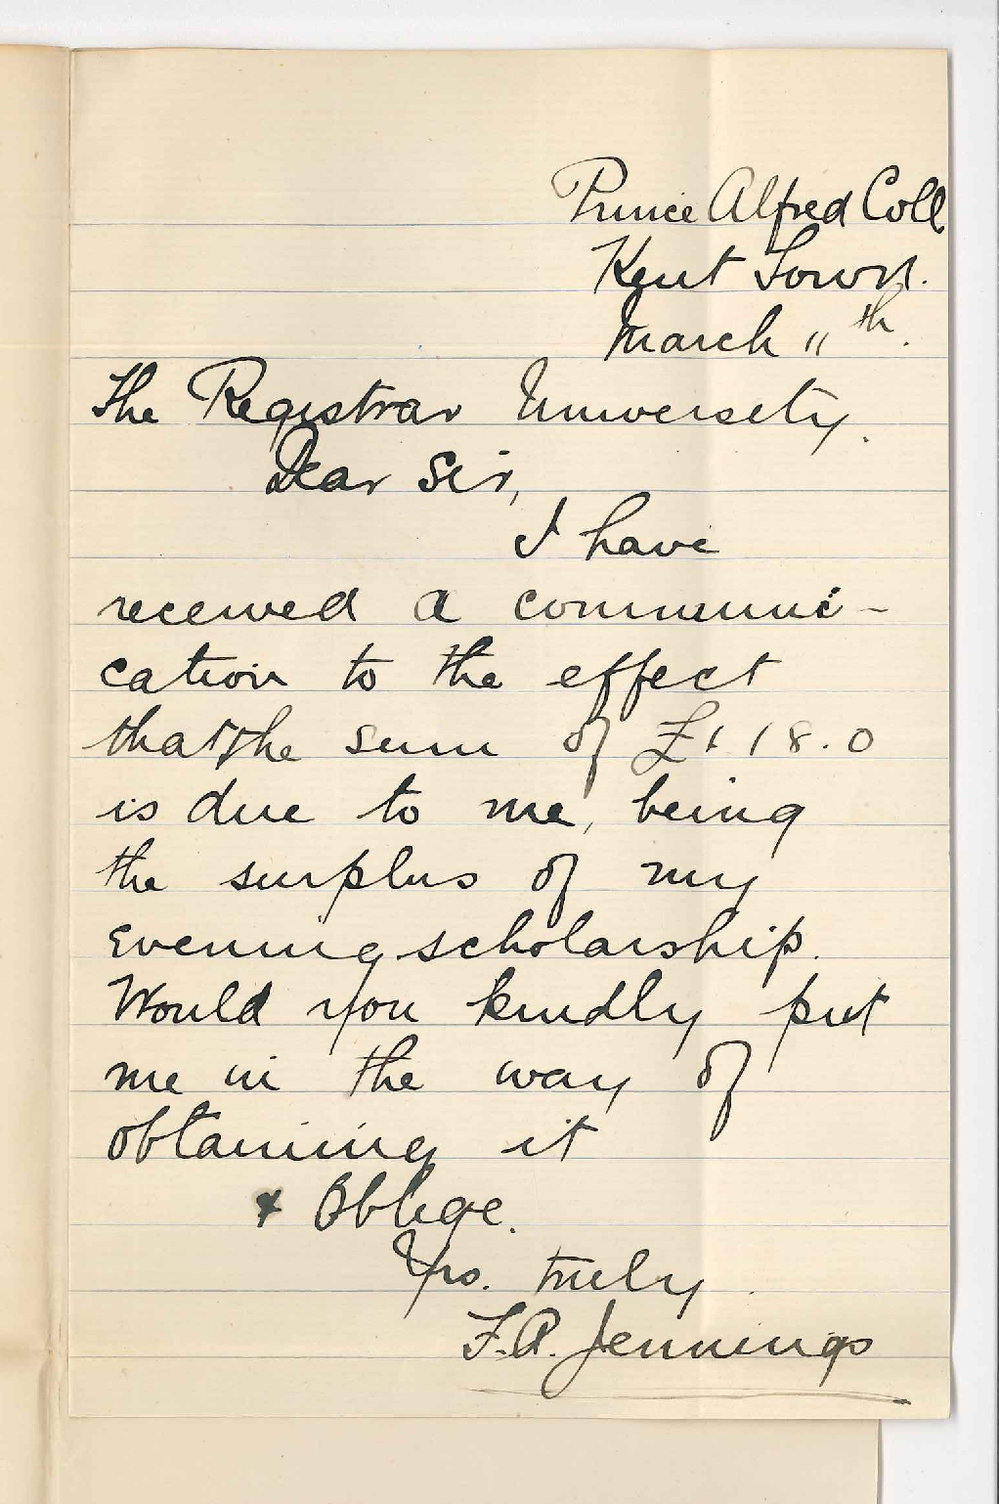 Prince Alfred Coll
Kent Town.
March 11th.
The Registrar University.
Dear Sir,
I have
received a communi-
cation to the effect
that the sum of £1 18.0
is due to me, being
the surplus of my
evening scholarship.
Would you kindly put
me in the way of
obtaining it
& Oblige.
Yrs. truly
F.A. Jennings